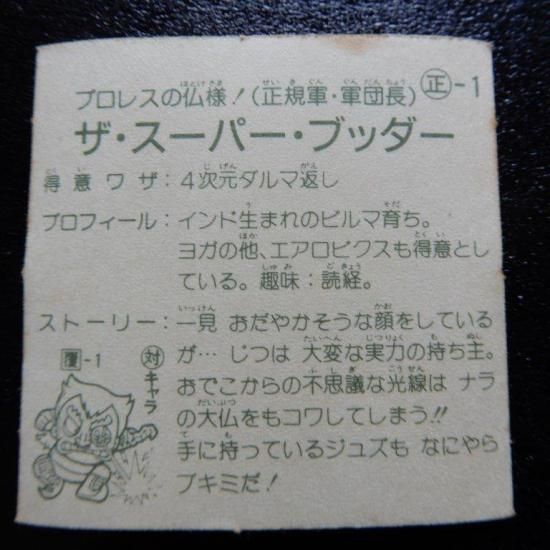 プロレスの仏様！（正規軍・軍団長） ㊣-1
ザ・スーパー・ブッダー
得意ワザ：4次元ダルマ返し
プロフィール：インド生まれのビルマ育ち。
ヨガの他、エアロビクスも得意とし
ている。趣味：読経。
ストーリー：一見 おだやかそうな顔をしている
が… じつは 大変な実力の持ち主。
おでこからの不思議な光線は ナラ
の大仏をもコワしてしまう!!
手に持っているジュズも なにやら
ブキミだ！
覆-1
対キャラ